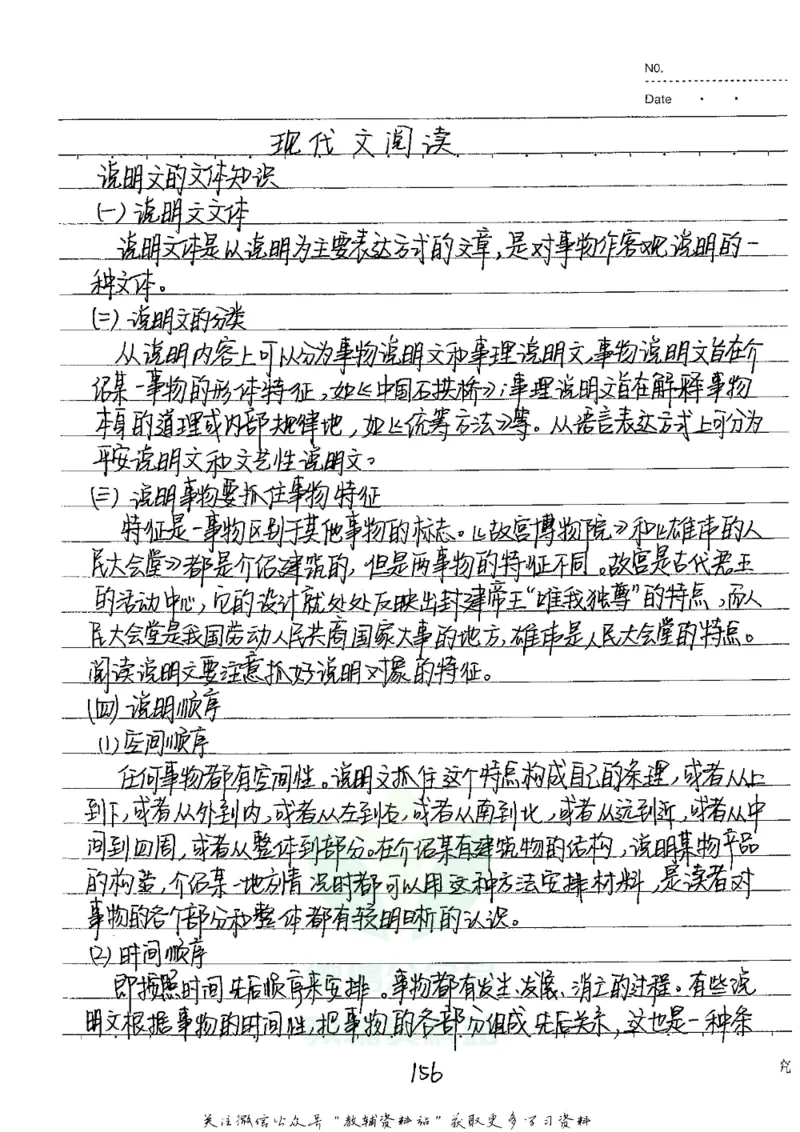 No.
Date
现代文阅读
说明文的文体知识
(一)说明文文体
说明文体是以说明为主要表达方式的文章,是对事物作客观说明的一
种文体。
(二)说明文的分类
从说明内容上可以分为事物说明文和事理说明文,事物说明文旨在介
绍某一事物的形体特征,如《中国石拱桥》;事理说明文旨在解释事物
本身的道理或内部规律地,如《统筹方法》等。从语言表达方式上可分为
平安说明文和文艺性说明文。
(三)说明事物要抓住事物特征
特征是一事物区别于其他事物的标志。《故宫博物院》和《雄伟的人
民大会堂》都是介绍建筑的,但是两事物的特征不同。故宫是古代君王
的活动中心,它的设计就处处反映出封建帝王“唯我独尊”的特点,而人
民大会堂是我国劳动人民共商国家大事的地方,雄伟是人民大会堂的特点。
阅读说明文要注意抓好说明对象的特征。
(四)说明顺序
(1)空间顺序
任何事物都有空间性。说明文抓住这个特点构成自己的条理,或者从上
到下,或者从外到内,或者从左到右,或者从南到北,或者从远到近,或者从中
间到四周,或者从整体到部分。在介绍某有建筑物的结构,说明某物产品
的构造,介绍某一地方情况时都可以用这种方法安排材料,是读者对
事物的各个部分和整体都有较明晰的认识。
(2)时间顺序
即按照时间先后顺序来安排。事物都有发生、发展、消亡的过程。有些说
明文根据事物的时间性,把事物的各部分组成先后关系,这也是一种条
156
究
关注微信公众号“教辅资料站”获取更多学习资料